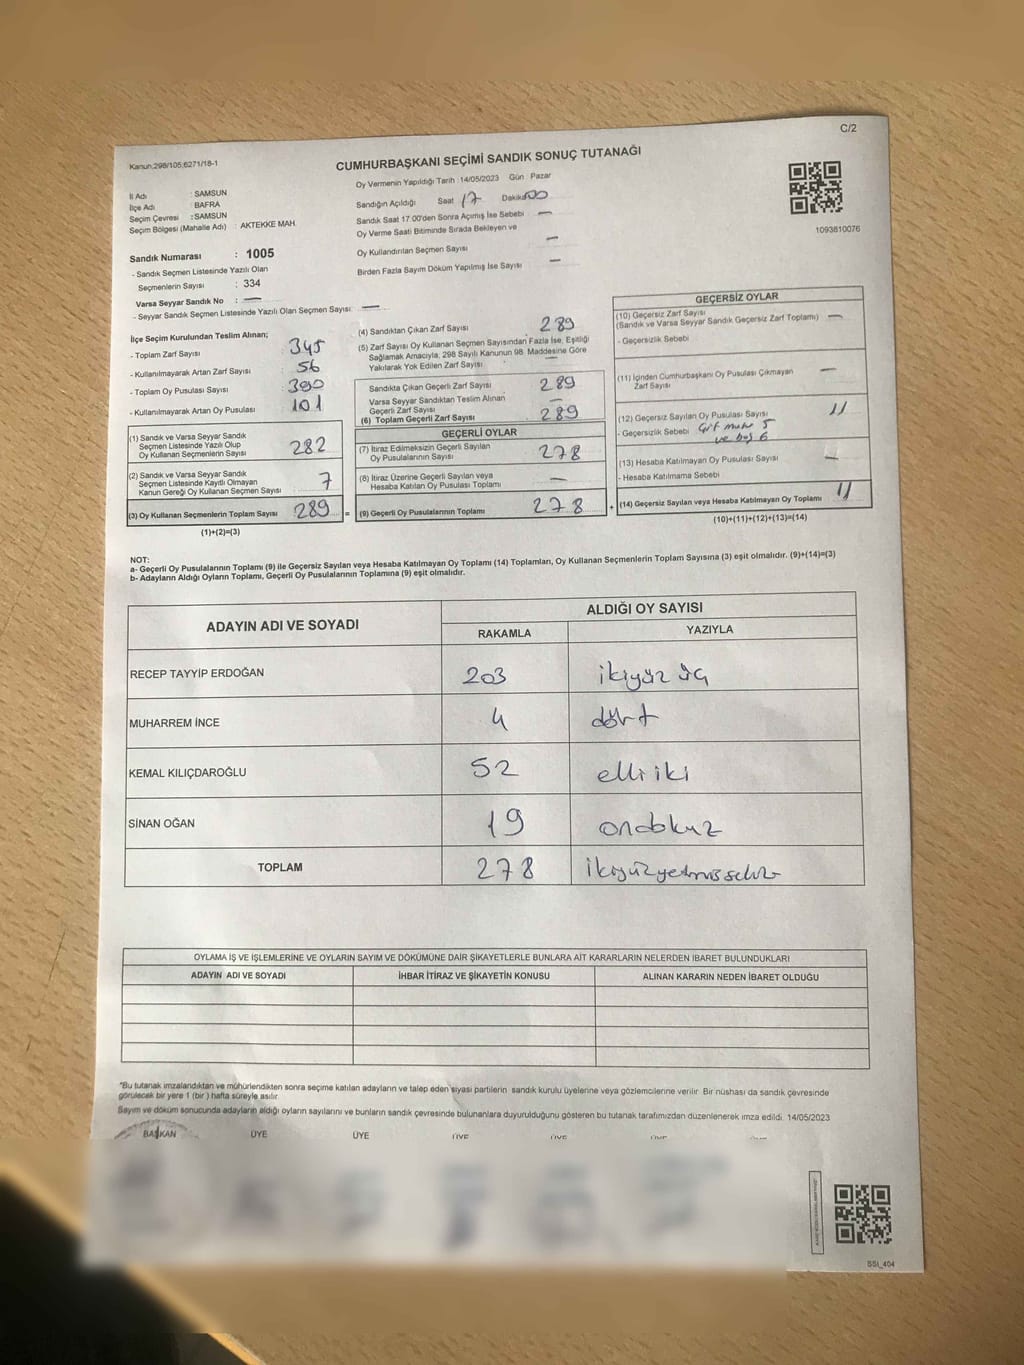 C/2
Kanun:298/105,6271/18-1
CUMHURBAŞKANI SEÇİMİ SANDIK SONUÇ TUTANAĞI
İl Adı : SAMSUN
İlçe Adı : BAFRA
Seçim Çevresi : SAMSUN
Seçim Bölgesi (Mahalle Adı) : AKTEKKE MAH.
Oy Vermenin Yapıldığı Tarih : 14/05/2023 Gün : Pazar
Sandığın Açıldığı Saat 17 Dakika 00
Sandık Saat 17.00'den Sonra Açımış İse Sebebi —
Oy Verme Saati Bitiminde Sırada Bekleyen ve
Oy Kullandırılan Seçmen Sayısı —
Birden Fazla Sayım Döküm Yapılmış İse Sayısı —
1093810076
Sandık Numarası : 1005
- Sandık Seçmen Listesinde Yazılı Olan
Seçmenlerin Sayısı : 334
Varsa Seyyar Sandık No : —
- Seyyar Sandık Seçmen Listesinde Yazılı Olan Seçmen Sayısı: —
İlçe Seçim Kurulundan Teslim Alınan;
- Toplam Zarf Sayısı 345
- Kullanılmayarak Artan Zarf Sayısı 56
- Toplam Oy Pusulası Sayısı 390
- Kullanılmayarak Artan Oy Pusulası 101
(1) Sandık ve Varsa Seyyar Sandık
Seçmen Listesinde Yazılı Olup
Oy Kullanan Seçmenlerin Sayısı 282
(2) Sandık ve Varsa Seyyar Sandık
Seçmen Listesinde Kayıtlı Olmayan
Kanun Gereği Oy Kullanan Seçmen Sayısı 7
(3) Oy Kullanan Seçmenlerin Toplam Sayısı 289 =
(1)+(2)=(3)
(4) Sandıktan Çıkan Zarf Sayısı 289
(5) Zarf Sayısı Oy Kullanan Seçmen Sayısından Fazla İse, Eşitliği
Sağlamak Amacıyla, 298 Sayılı Kanunun 98. Maddesine Göre
Yakılarak Yok Edilen Zarf Sayısı —
Sandıkta Çıkan Geçerli Zarf Sayısı 289
Varsa Seyyar Sandıktan Teslim Alınan
Geçerli Zarf Sayısı —
(6) Toplam Geçerli Zarf Sayısı 289
GEÇERLİ OYLAR
(7) İtiraz Edilmeksizin Geçerli Sayılan
Oy Pusulalarının Sayısı 278
(8) İtiraz Üzerine Geçerli Sayılan veya
Hesaba Katılan Oy Pusulası Toplamı —
(9) Geçerli Oy Pusulalarının Toplamı 278 +
GEÇERSİZ OYLAR
(10) Geçersiz Zarf Sayısı
(Sandık ve Varsa Seyyar Sandık Geçersiz Zarf Toplamı) —
- Geçersizlik Sebebi
(11) İçinden Cumhurbaşkanı Oy Pusulası Çıkmayan
Zarf Sayısı —
(12) Geçersiz Sayılan Oy Pusulası Sayısı 11
- Geçersizlik Sebebi Çift mühür 5
ve boş 6
(13) Hesaba Katılmayan Oy Pusulası Sayısı —
- Hesaba Katılmama Sebebi
(14) Geçersiz Sayılan veya Hesaba Katılmayan Oy Toplamı 11
(10)+(11)+(12)+(13)=(14)
NOT:
a- Geçerli Oy Pusulalarının Toplamı (9) ile Geçersiz Sayılan veya Hesaba Katılmayan Oy Toplamı (14) Toplamları, Oy Kullanan Seçmenlerin Toplam Sayısına (3) eşit olmalıdır. (9)+(14)=(3)
b- Adayların Aldığı Oyların Toplamı, Geçerli Oy Pusulalarının Toplamına (9) eşit olmalıdır.
ADAYIN ADI VE SOYADI ALDIĞI OY SAYISI
RAKAMLA YAZIYLA
RECEP TAYYİP ERDOĞAN 203 ikiyüz üç
MUHARREM İNCE 4 dört
KEMAL KILIÇDAROĞLU 52 elli iki
SİNAN OĞAN 19 ondokuz
TOPLAM 278 ikiyüzyetmişsekiz
OYLAMA İŞ VE İŞLEMLERİNE VE OYLARIN SAYIM VE DÖKÜMÜNE DAİR ŞİKAYETLERLE BUNLARA AİT KARARLARIN NELERDEN İBARET BULUNDUKLARI
ADAYIN ADI VE SOYADI İHBAR İTİRAZ VE ŞİKAYETİN KONUSU ALINAN KARARIN NEDEN İBARET OLDUĞU
"Bu tutanak imzalandıktan ve mühürlendikten sonra seçime katılan adayların ve talep eden siyasi partilerin sandık kurulu üyelerine veya gözlemcilerine verilir. Bir nüshası da sandık çevresinde
görülecek bir yere 1 (bir) hafta süreyle asılır.
Sayım ve döküm sonucunda adayların aldığı oyların sayılarını ve bunların sandık çevresinde bulunanlara duyurulduğunu gösteren bu tutanak tarafımızdan düzenlenerek imza edildi. 14/05/2023
BAŞKAN ÜYE ÜYE ÜYE ÜYE
SSİ_404